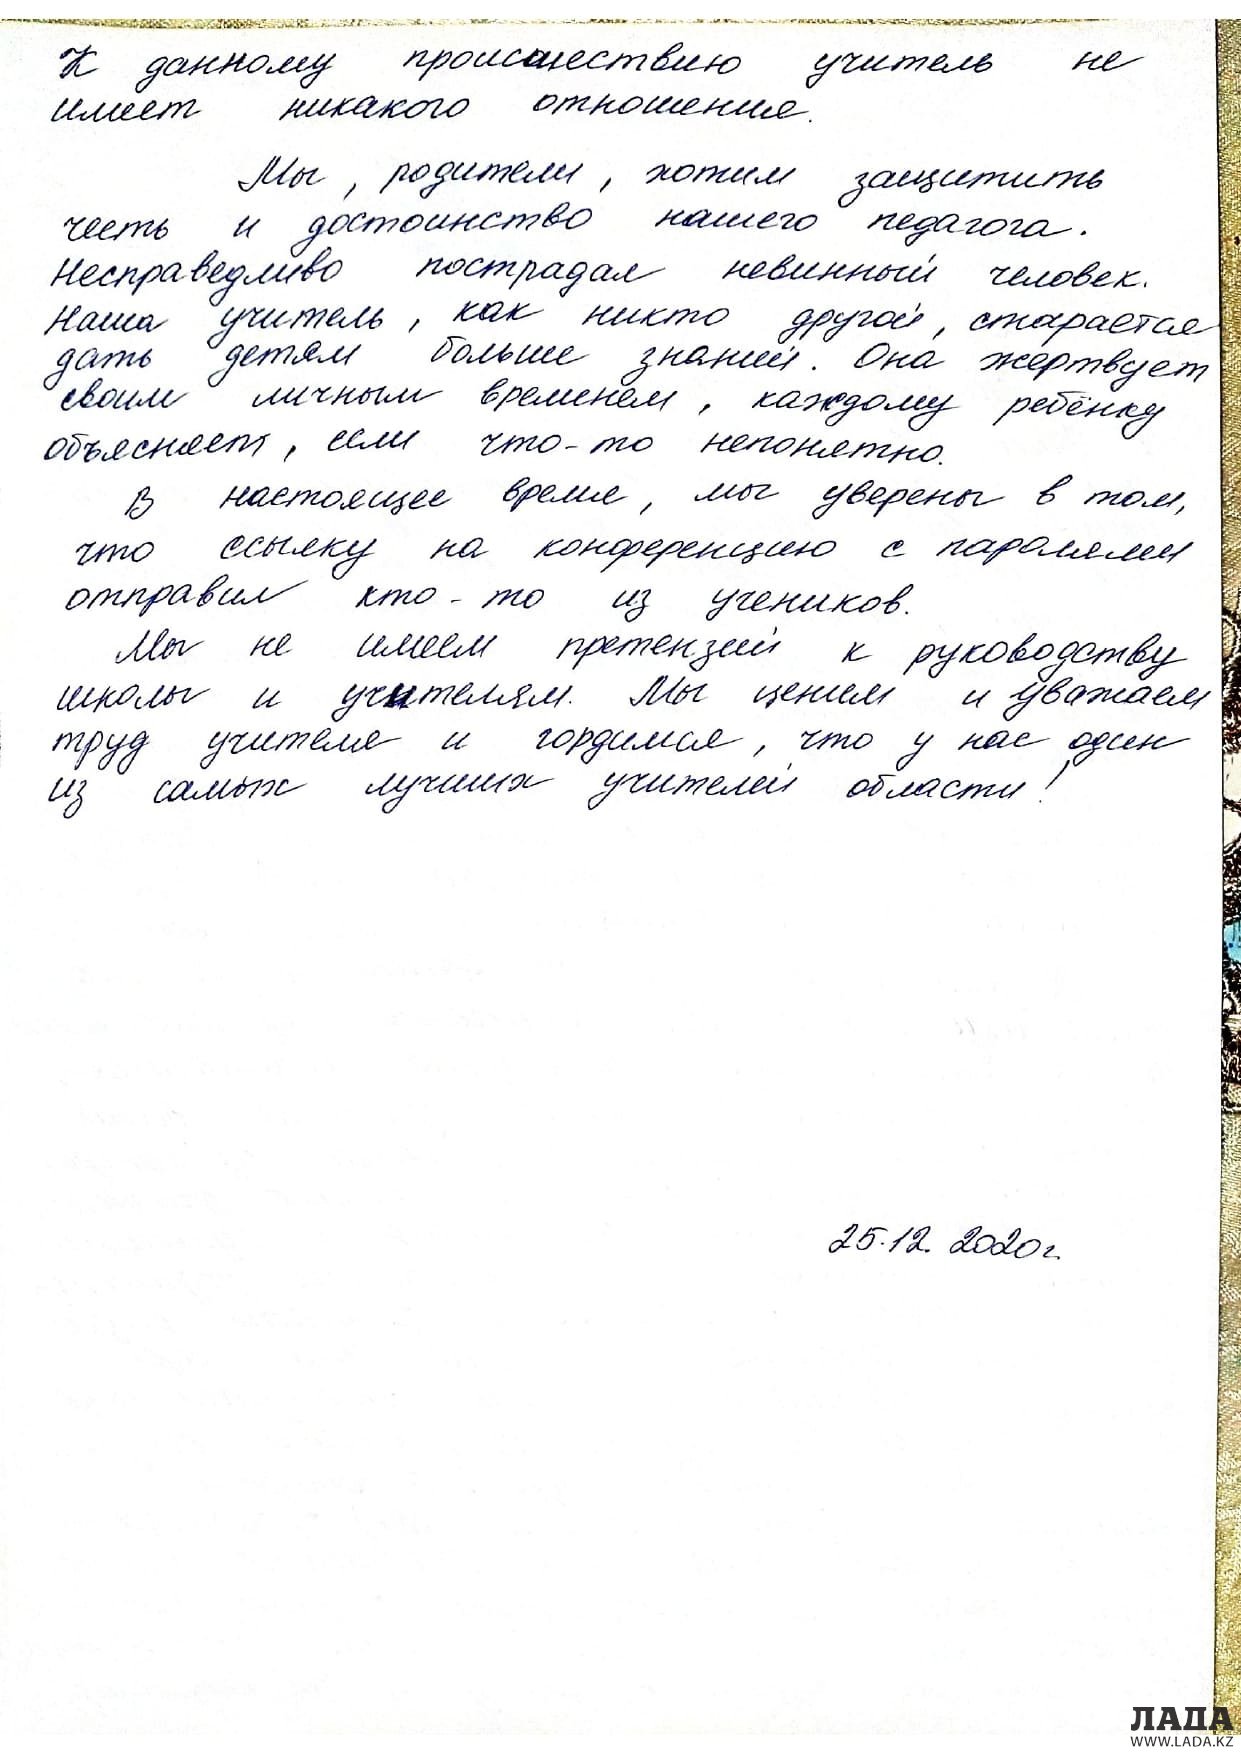 К данному происшествию учитель не
имеет никакого отношения.
Мы, родители, хотим защитить
честь и достоинство нашего педагога.
Несправедливо пострадал невинный человек.
Наша учитель, как никто другой, старается
дать детям больше знаний. Она жертвует
своим личным временем, каждому ребёнку
объясняет, если что-то непонятно.
В настоящее время, мы уверены в том,
что ссылку на конференцию с паролями
отправил кто-то из учеников.
Мы не имеем претензий к руководству
школы и учителям. Мы ценим и уважаем
труд учителя и гордимся, что у нас один
из самых лучших учителей области!
25.12.2020г.
ЛАДА
WWW.LADA.KZ